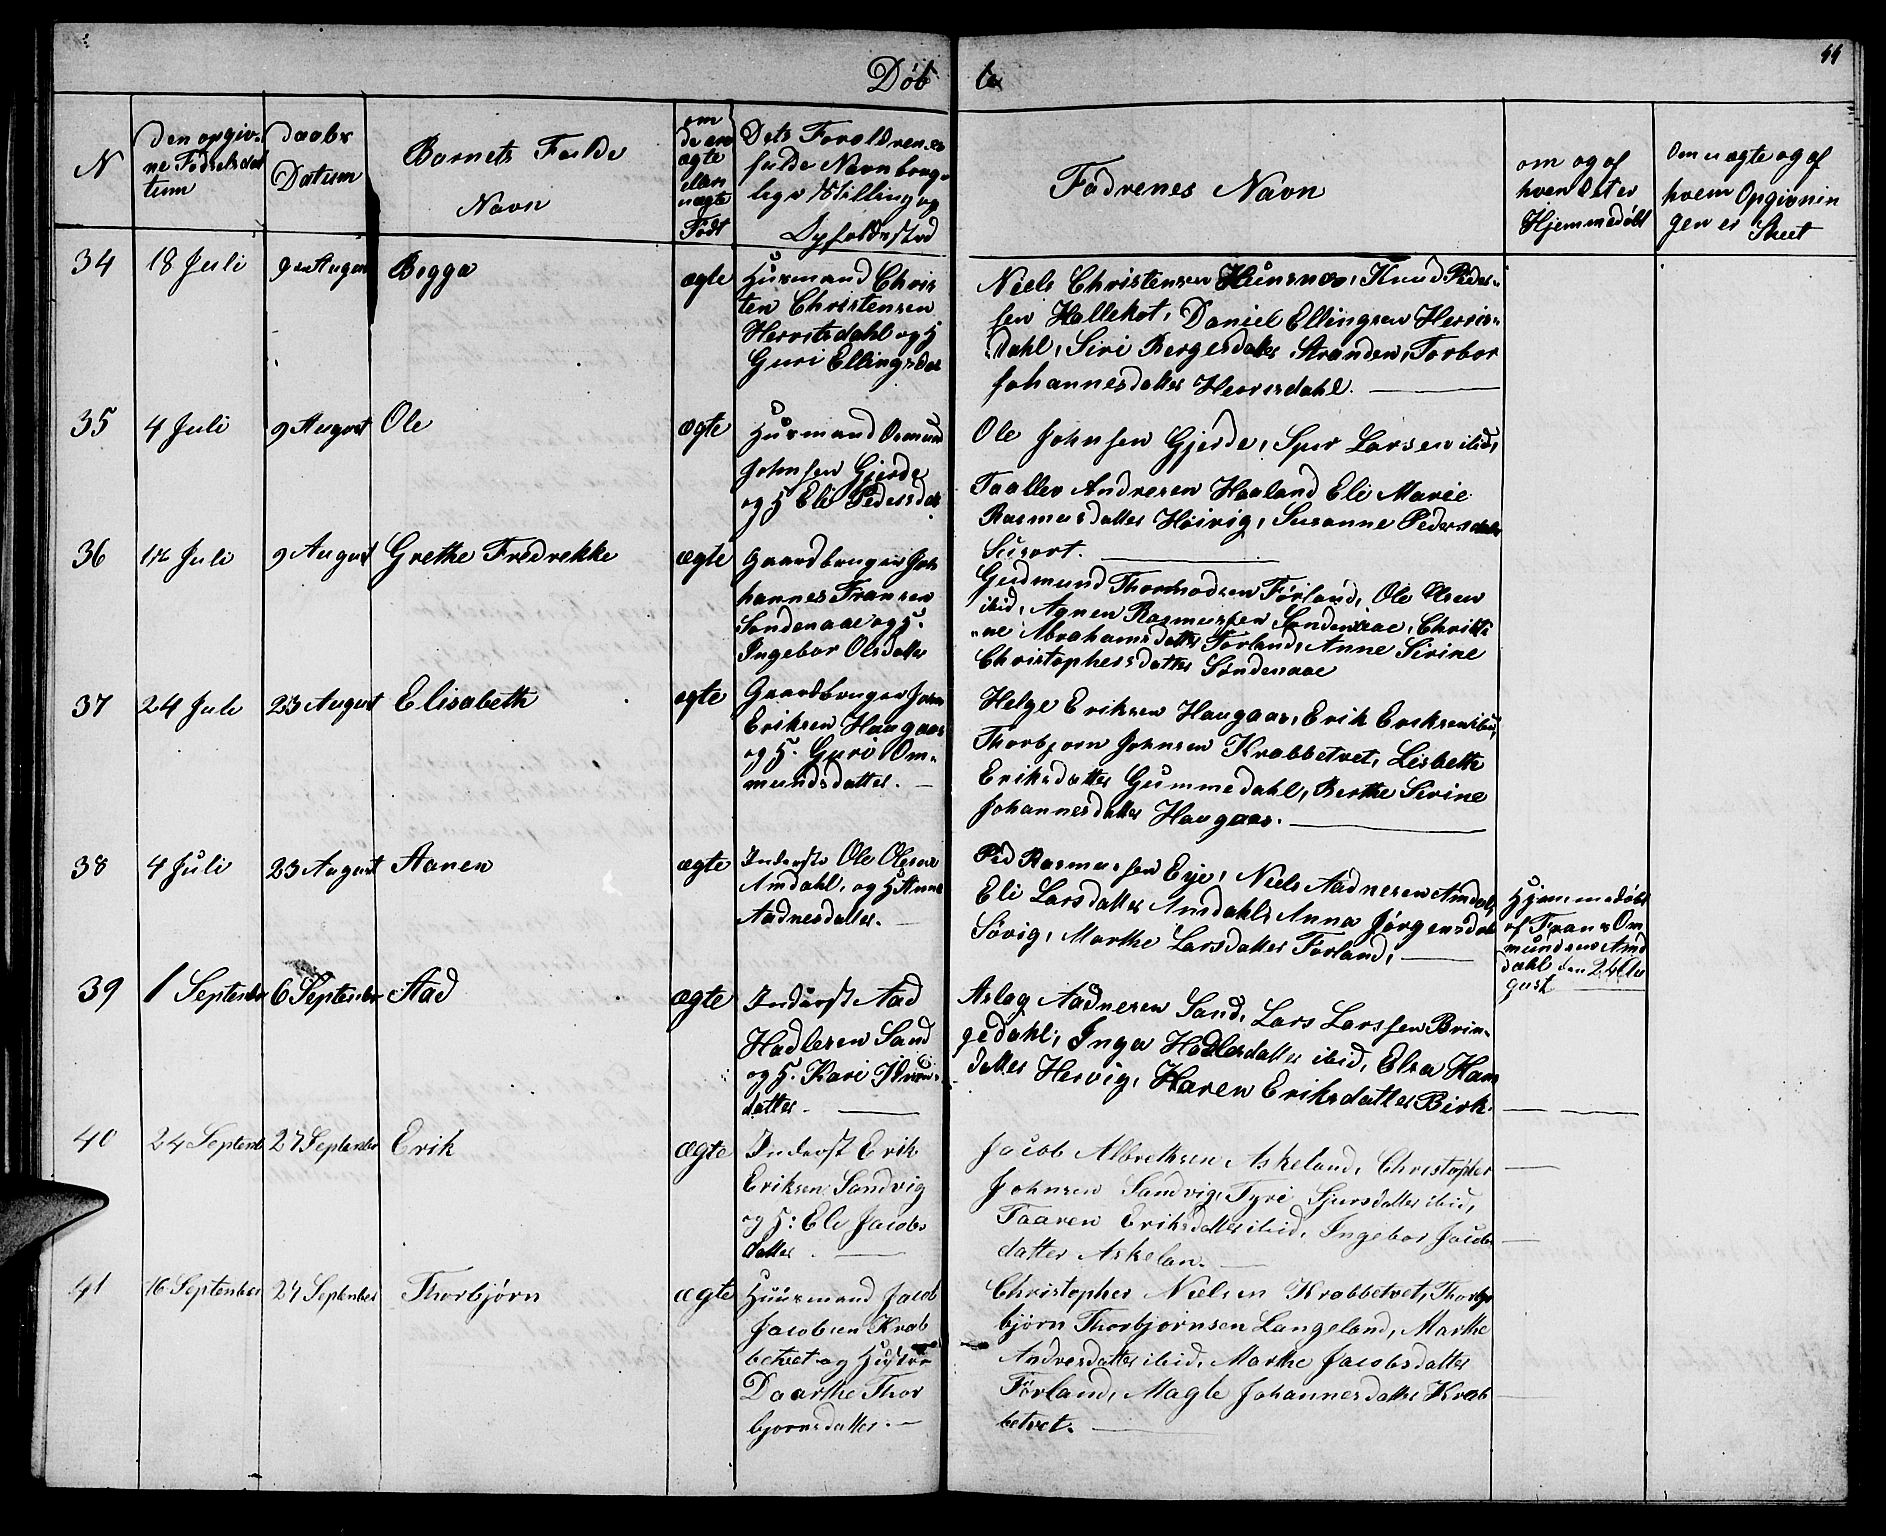 Döb te
44
N
den opgiv-
ne Födselsda-
tum
daabs
Datum
Barnets Fulde
Navn
om
de er
ægte
eller
uægte
Födt
Dets Forældrenes
fulde Navn borg-
lige Stilling og
Opholdssted
Fadrenes Navn
om og af
hvem det er
Hjemmedöbt
Om uægte og af
hvem Opgivnin
gen er Skeet
34 18 Juli 9 August Begga ægte
Huusmand Chris
ten Christensen
Herrisdahl og H
Guri Ellingsdat
Niels Christensen Hunsnæs, Knud Peder-
sen Hallekot, Daniel Ellingsen Herris-
dahl, Siri Bergesdatter Stranden, Torbor
Johannesdatter Herrisdahl.
35 4 Juli 9 August Ole ægte
Huusmand Osmund
Johnsen Gjerde
og H Eli Pedersdat
Ole Johnsen Gjerde, Spur Larsen ibid,
Taallev Andresen Haaland Eli Marie
Rasmusdatter Höivig, Susanne Pedersdatter
Susort.
36 Juli 9 August Grethe Fredrekke ægte
Gaardbruger Joh
hannes Fransen
Søndenaae og H.
Ingebor Olsdatter
Gudmund Thormodsen Förland, Ole Olsen
ibid, Agnen Rasmussen Søndenaae, Christi
ne Abrahamsdatter Førland, Anne Sirine
Christophersdatter Søndenaae
37 24 Juli 23 August Elisabeth ægte
Gaardbruger John
Eriksen Haugaas
og H. Guri Om-
mundsdatter.
Helge Eriksen Haugaas, Erik Eriksen ibid,
Thorbjorn Johnsen Krabbetvet, Lisbeth
Eriksdatter Gummedahl, Berthe Sirine
Johannesdatter Haugaas.
38 4 Juli 23 August Aanen ægte
Inderste Ole Olesen
Amdahl, og H Anna
Aadnesdatter.
Ped Rasmussen Eye, Niels Aadnesen Amdal,
Eli Larsdatter Amdahl, Anna Jørgensdat
Sövig, Marthe Larsdatter Førland,
Hjemmedöbt
af Frans Om
mundsen Amd
dahl den 24 Au
gust
39 1 September 6 September Aad ægte
Inderst Aad
Hadlesen Sand
og H. Kari
datter.
Aslag Aadnesen Sand, Lars Larssen Brin-
gedahl, Inga Hadlesdatter ibid, Elsa Hans
datter Hervig, Karen Eriksdatter Birk.
40 24 Septemb 27 September Erik ægte
Inderst Erik
Eriksen Sandvig
og H: Eli Jacobs
datter.
Jacob Albrektsen Askeland, Christopher
Johnsen Sandvig, Tyri Sjursdatter ibid,
Taaren Eriksdatter ibid, Ingebor Jacobs
datter Askelan.
41 16 September 27 September Thorbjørn ægte
Huusmand Jacob
Jacobsen Krab
betvet og Hustru
Daarthe Thor
bjornsdatter.
Christopher Nielsen Krabbetvet, Thor
björn Thorbjornsen Langeland, Marthe
Andresdatter ibid, Marthe Jacobsdatter
Förland, Magle Johannesdatter Krab
betvet.